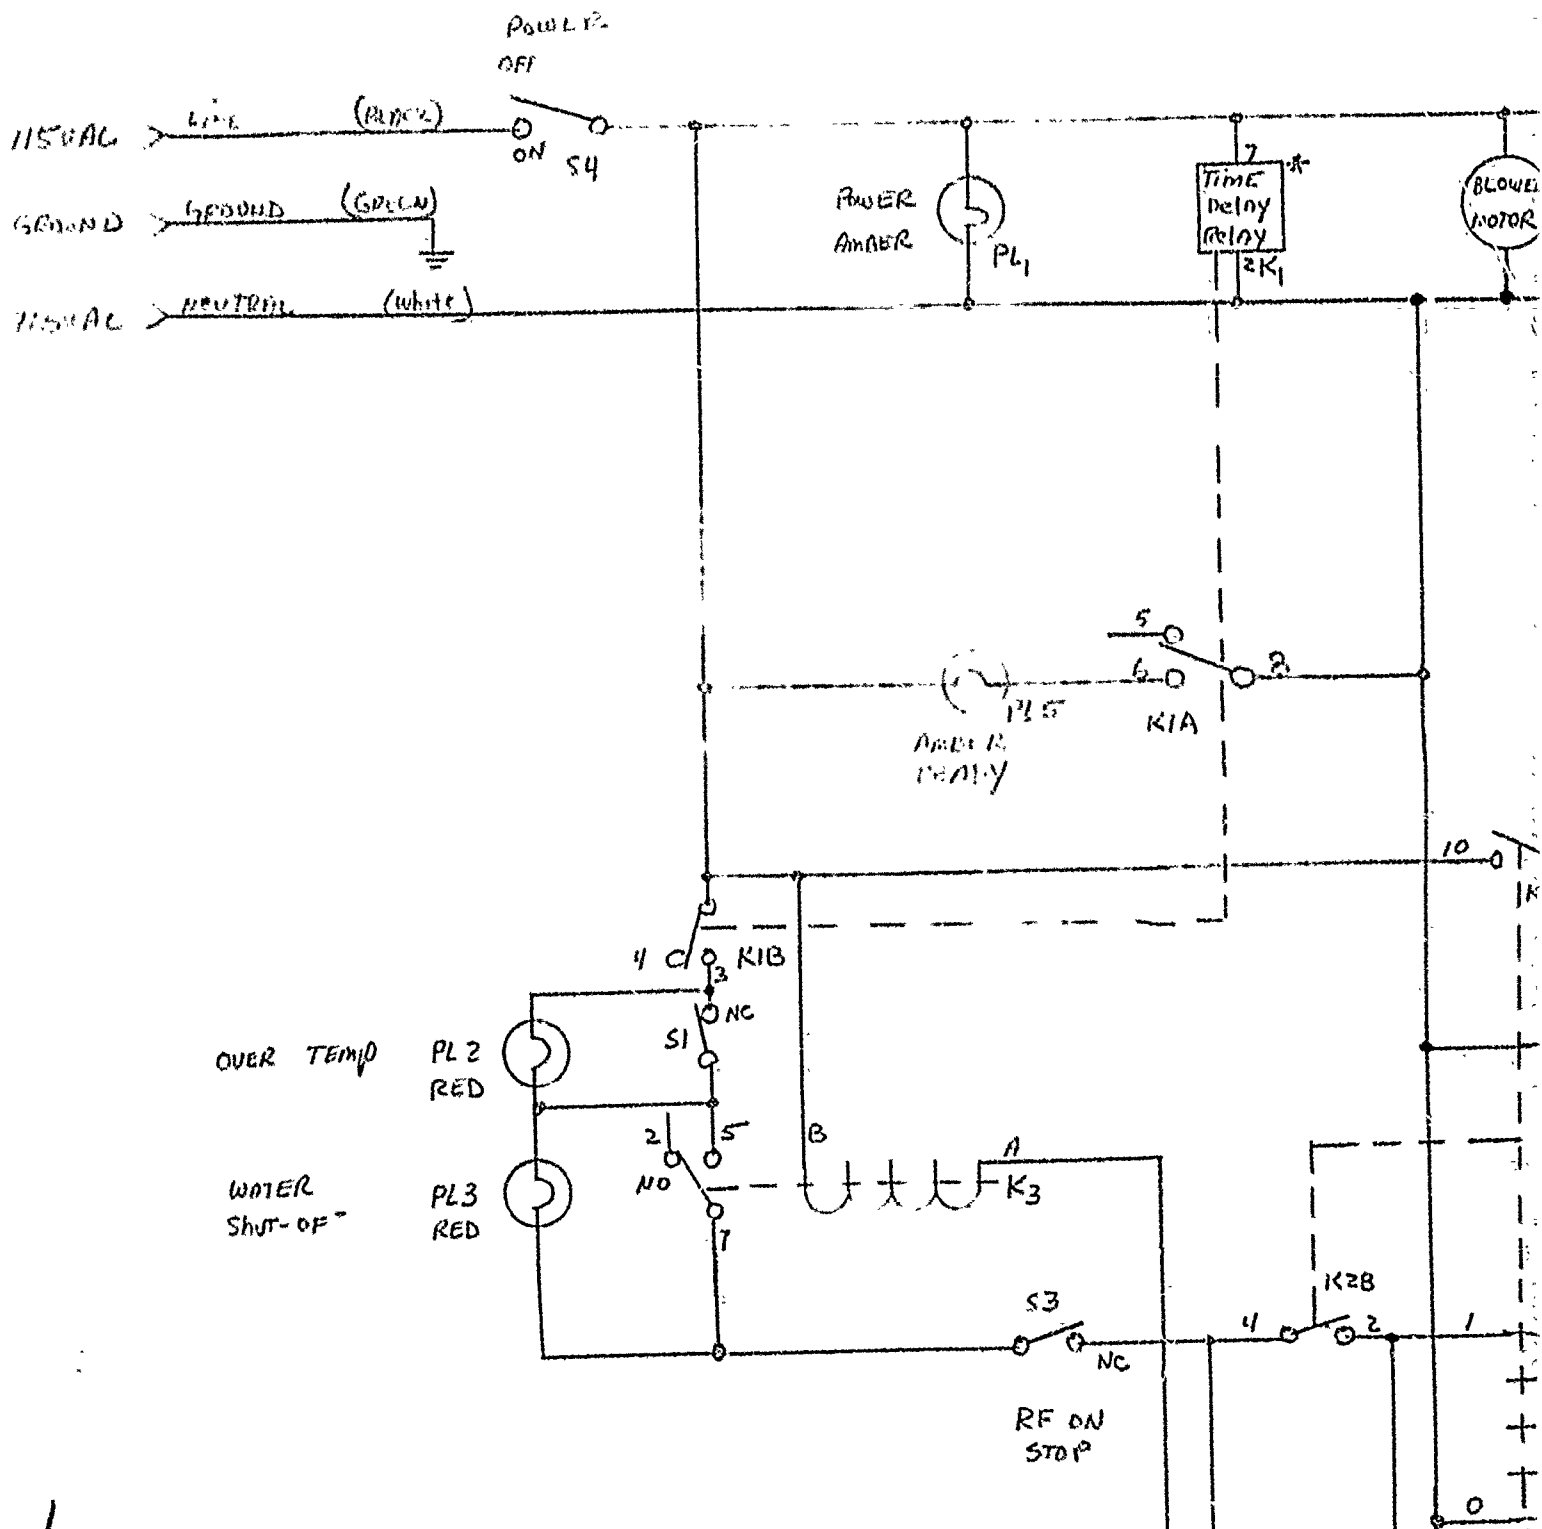 POWER
OFF
115VAC LINE (BLACK)
ON S4
GROUND GROUND (GREEN)
115VAC NEUTRAL (White)
POWER
AMBER
PL1
7
TIME
Delay
Relay
*
2 K1
BLOWE
MOTOR
5
6
2
PL5
K1A
AMBER
READY
10
K
4 C K1B
3
NC
S1
OVER TEMP PL2
RED
2 5
NO
7
B A
K3
WATER
Shut-OF
PL3
RED
S3
NC
RF ON
STOP
K2B
4 2 1
0